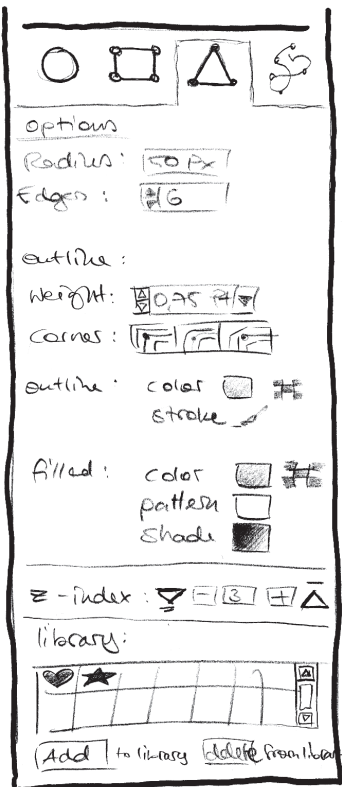 options
Radius: 50 px
Edges: 6
outline:
Weight: 0,75 pt
Corner:
outline: color
stroke
filled: color
pattern
shade
z-index: - 3 +
library:
Add to library delete from library